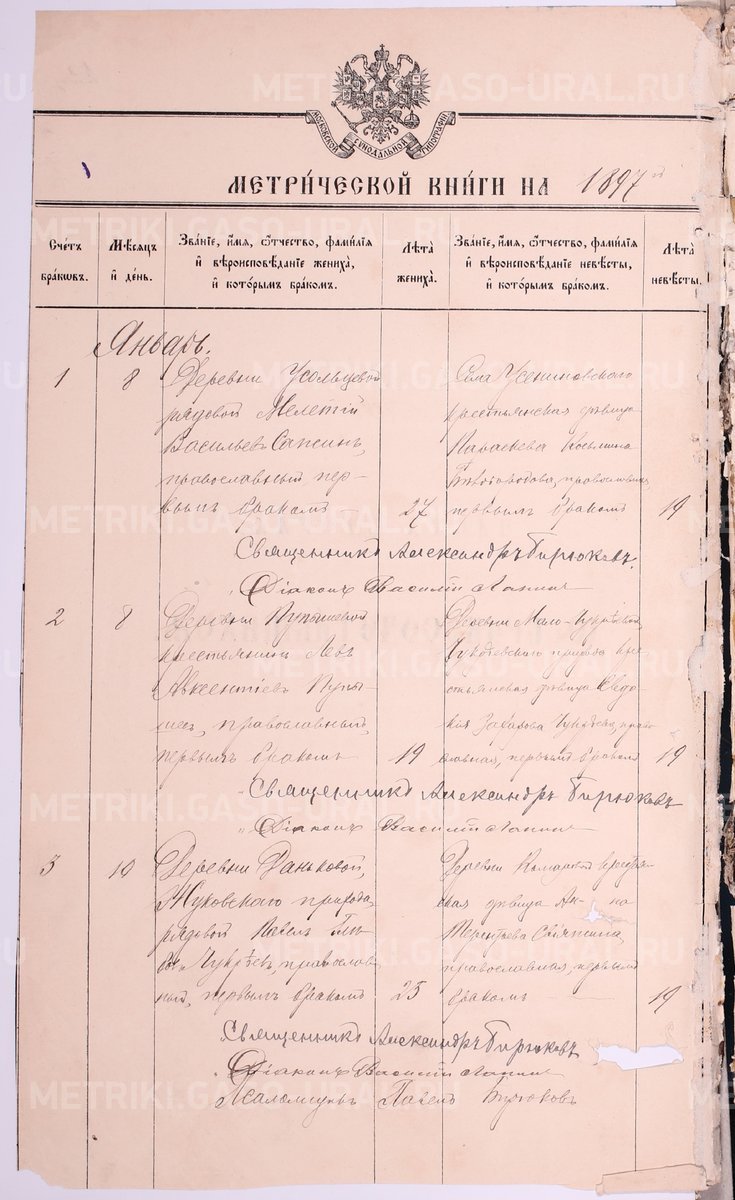 МОСКОВСКОЙ СѴНОДАЛЬНОЙ ТИПОГРАФІИ
МЕТРИ́ЧЕСКОЙ КНИ́ГИ НА 1897 й
Сче́тъ бра́кѡвъ.
Мѣ́сяцъ и҆ де́нь.
Зва́нїе, и҆́мя, ѻ҆́тчество, фами́лїя
и҆ вѣроисповѣ́данїе жениха̀,
и҆ кото́рымъ бра́комъ.
Лѣ́та жениха̀.
Зва́нїе, и҆́мя, ѻ҆́тчество, фами́лїя
и҆ вѣроисповѣ́данїе невѣ́сты,
и҆ кото́рымъ бра́комъ.
Лѣ́та невѣ́сты.
Январь.
1 8 Деревни Усольцевой
рядовой Мелетій
Васильевъ Сапсинъ,
православный пер-
вымъ бракомъ 27
Села Усениновскаго
крестьянская дѣвица
Параскева Косьмина
православная
первымъ бракомъ 19
Священникъ Александръ Бирюковъ.
Діаконъ Василій Лапинъ
2 8 Деревни Пупышевой
крестьянинъ Левъ
Авксентіевъ Пупы-
шевъ, православный,
первымъ бракомъ 19
Деревни Мало-
прихода кре-
стьянская дѣвица Евдо-
кія право-
славная, первымъ бракомъ 19
Священникъ Александръ Бирюковъ
Діаконъ Василій Лапинъ
3 10 Деревни Даньковой,
Жуковскаго прихода,
рядовой Павелъ Глѣ-
бовъ Чукрѣевъ, православ-
ный, первымъ бракомъ 25
Деревни Комаровой крестьян-
ская дѣвица Ан- на
Терентьева
православная, первымъ
бракомъ 19
Священникъ Александръ Бирюковъ
Діаконъ Василій Лапинъ
Псаломщикъ Павелъ Бирюковъ
METRIKI.GASO-URAL.RU